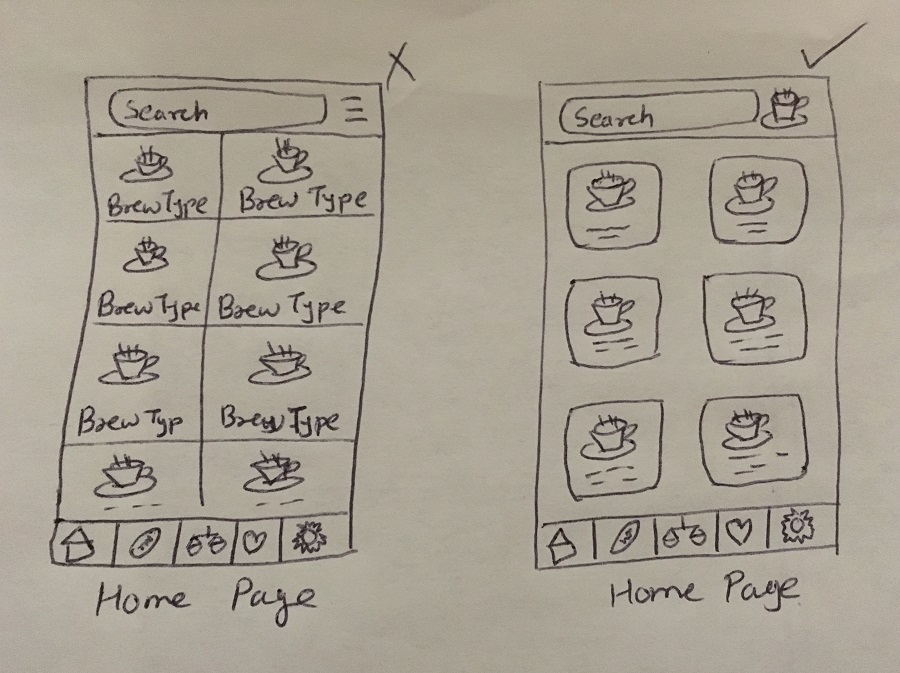 Search
Brew Type
Brew Type
Brew Type
Brew Type
Brew Typ
Brew Type
Home Page
Search
Home Page